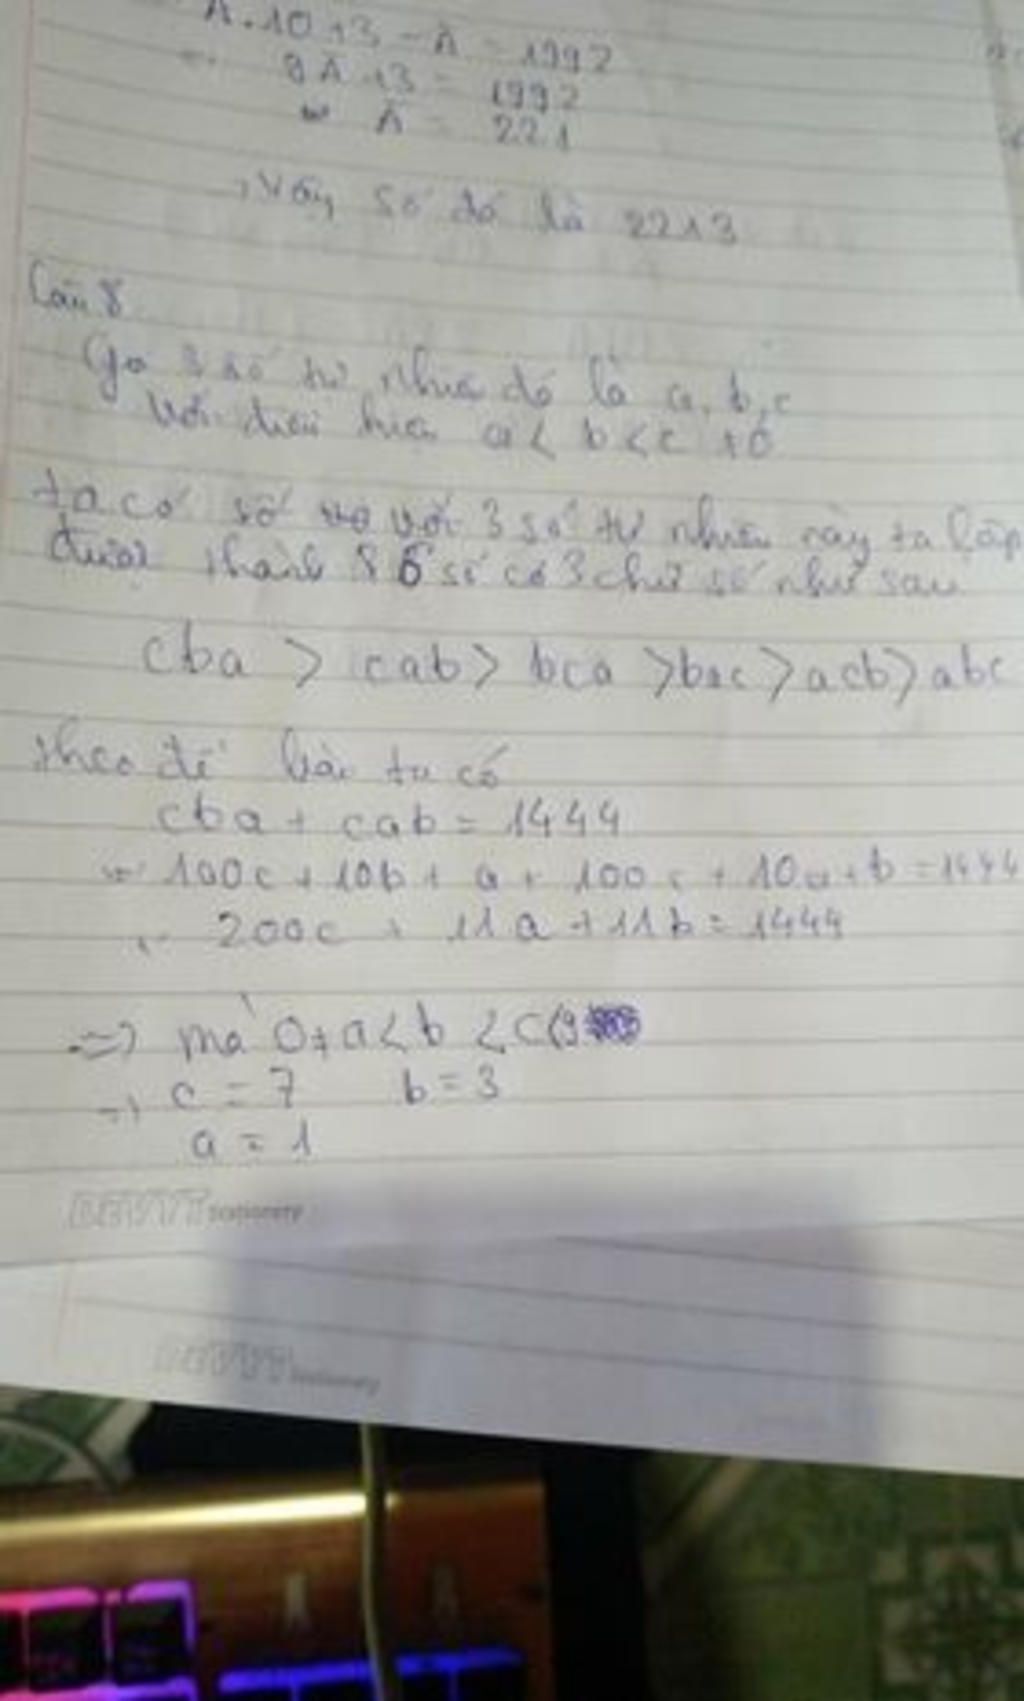 A.10+3 - A = 1992
9A+3 = 1992
A = 221
Vậy số đó là 2213
Câu 8
Gọi 3 số tự nhiê đó là a, b, c
Với điều kiện a < b < c ≠ 0
ta có số với 3 số tự nhiên này ta lập
được thành 6 số có 3 chữ số như sau
cba > cab > bca > bac > acb > abc
theo đề bài ta có
cba + cab = 1444
100c + 10b + a + 100c + 10a + b = 1444
200c + 11a + 11b = 1444
=> mà 0 ≠ a < b < c < 9
=> c = 7 b = 3
a = 1
DEVYT Stationery
DEVYT Stationery